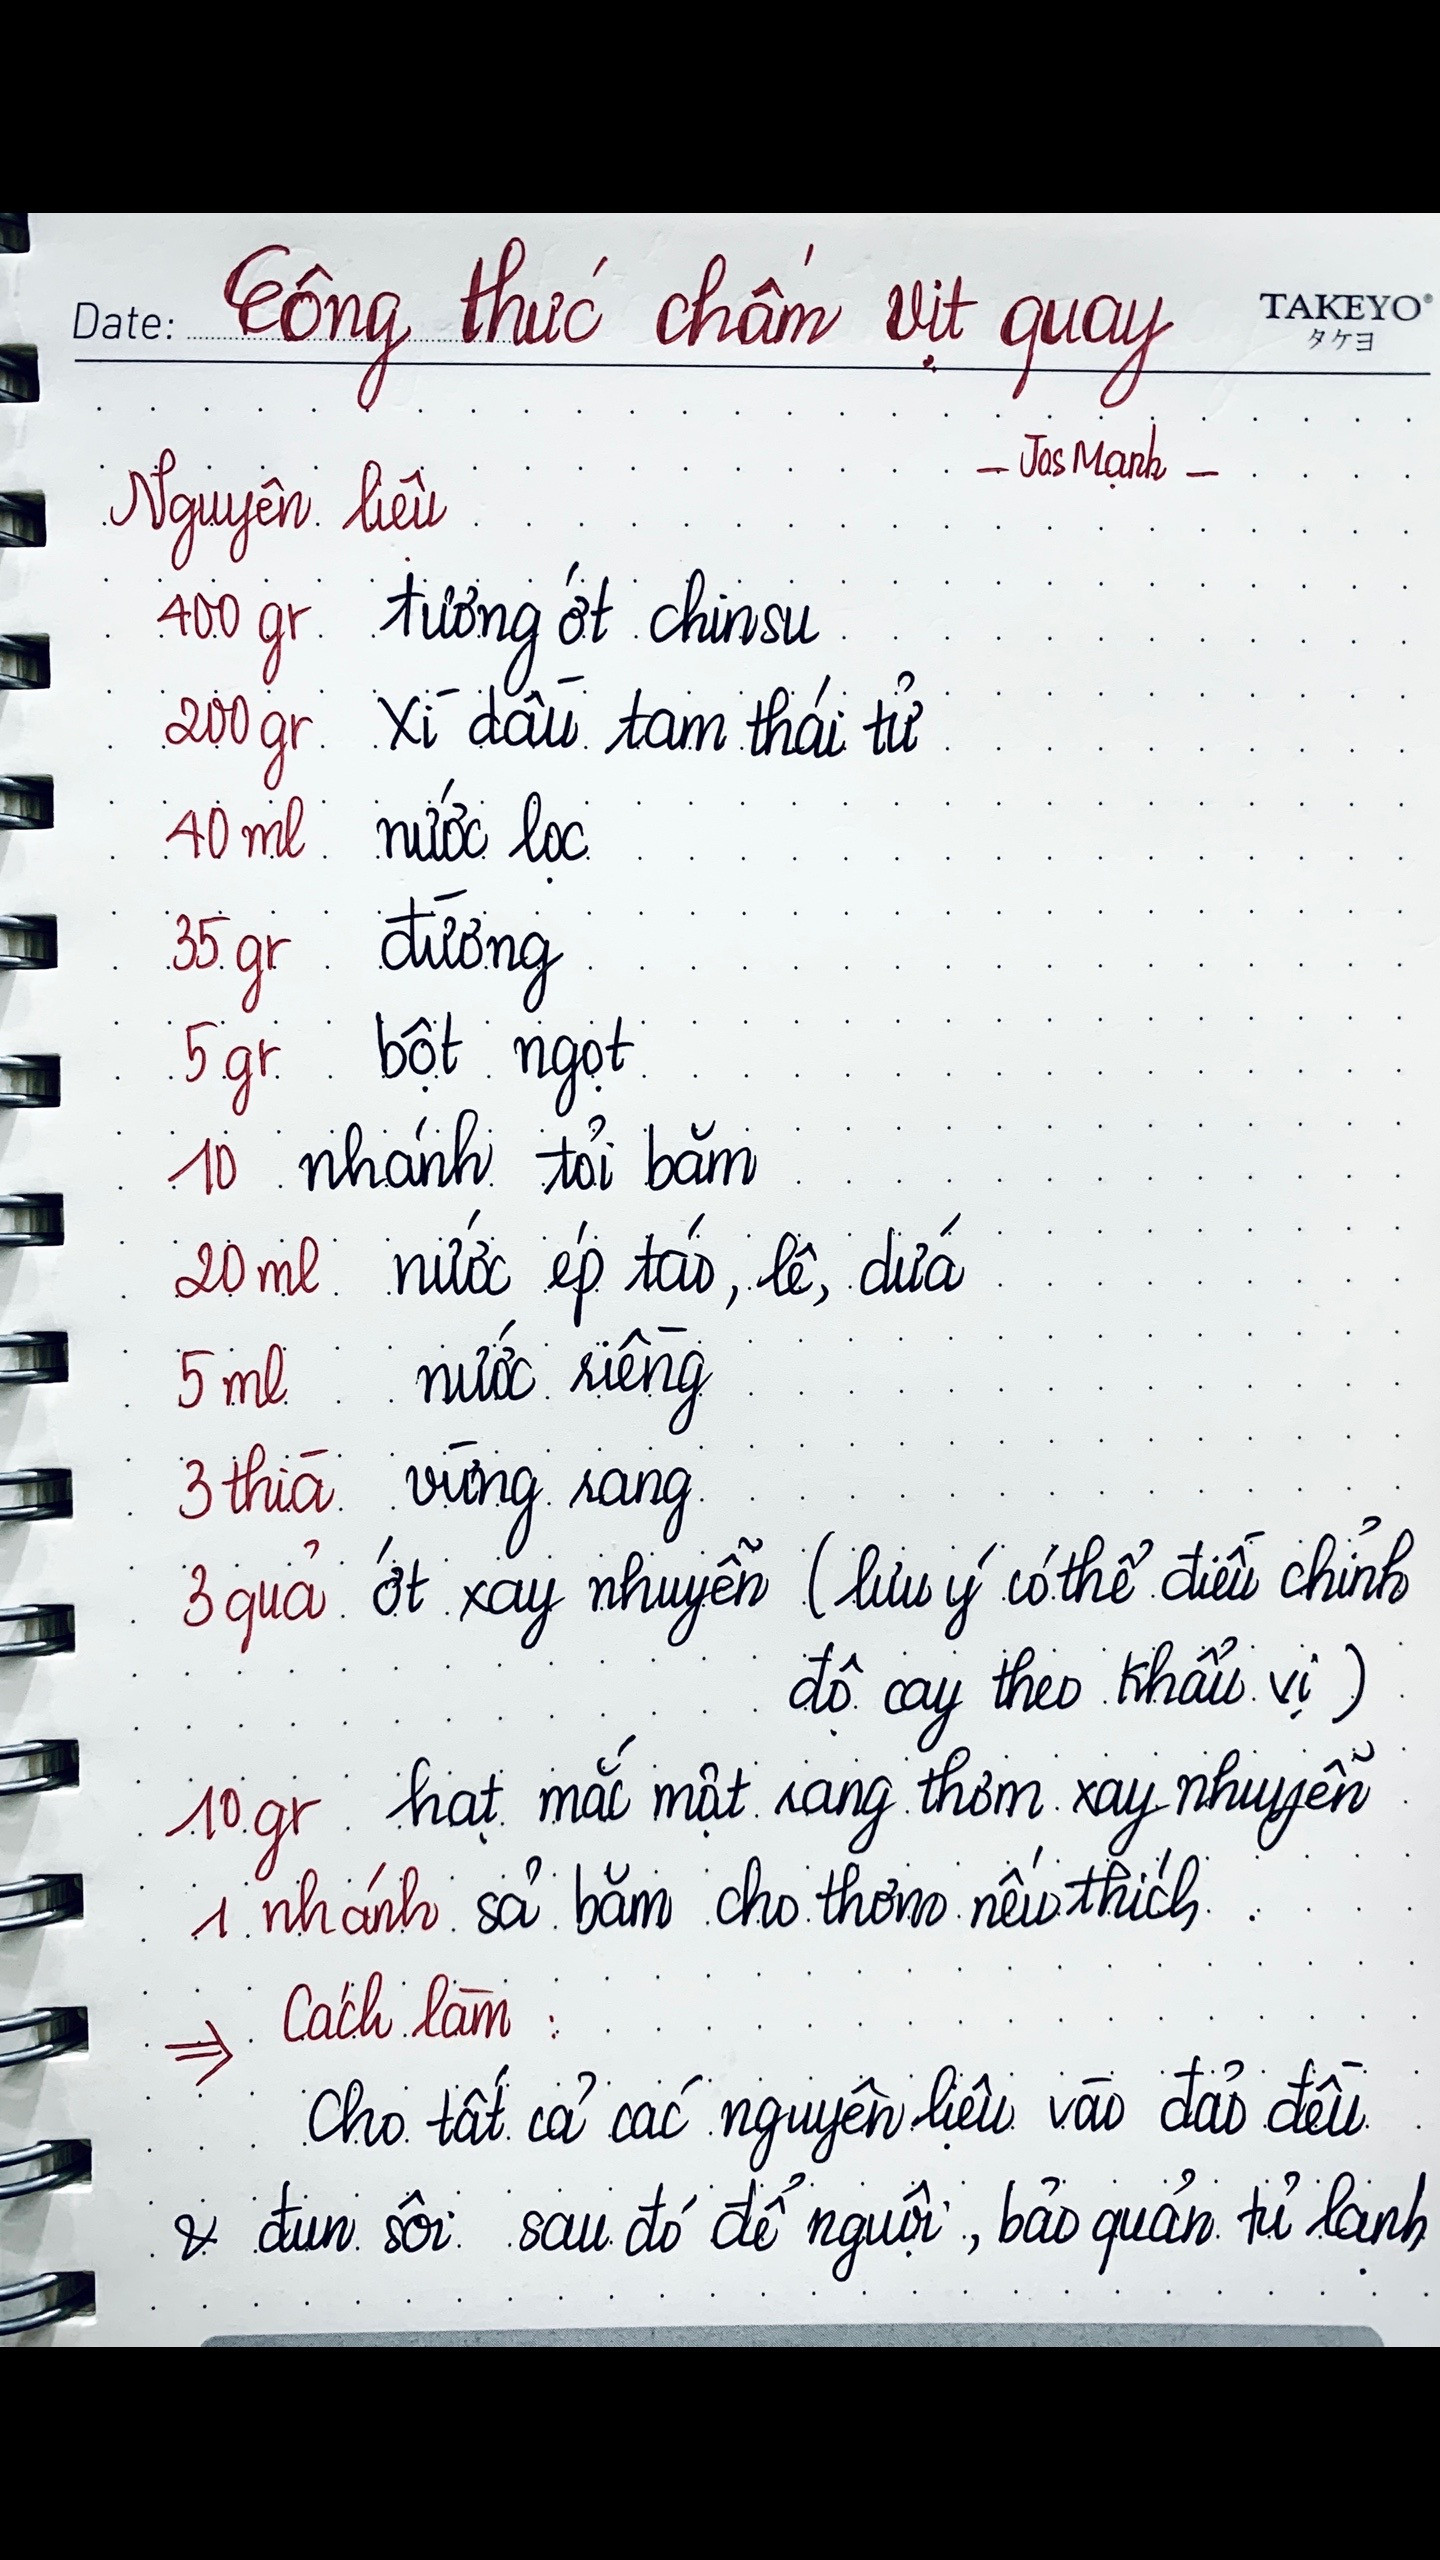 Công thức chấm vịt quay
Date:
TAKEYO
タケヨ
- Jos Mạnh -
Nguyên liệu
400 gr tương ớt chinsu
200 gr xì dầu tam thái tử
40 ml nước lọc
35 gr đường
5 gr bột ngọt
10 nhánh tỏi băm
20 ml nước ép táo, lê, dứa
5 ml nước riềng
3 thìa vừng rang
3 quả ớt xay nhuyễn (lưu ý có thể điều chỉnh
độ cay theo khẩu vị)
10 gr hạt mắc mật rang thơm xay nhuyễn
1 nhánh sả băm cho thơm nếu thích.
⇒ Cách làm:
Cho tất cả các nguyên liệu vào đảo đều
& đun sôi sau đó để nguội, bảo quản tủ lạnh